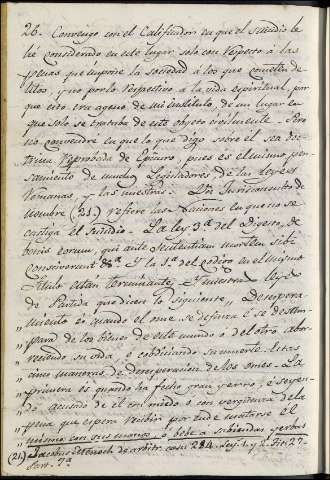 28. Convengo con el Calificador en que el suicidio le
hé considerado en este lugar solo con respecto á las
penas que impone la sociedad á los que cometen de-
litos, y no por lo respectivo á la vida espiritual, por
que esto era ageno de mi instituto de un lugar en
que solo se trataba de este objeto civilmente. Pero
no convendre en que lo que digo sobre el sea doc-
trina reprobada de Epicuro, pues es el mismo pen-
samiento de muchos Legisladores de las leyes
Romanas y las nuestras. Un Jurisconsulto de
nombre (21) refiere las Naciones en que no se
castiga el suicidio. La ley 3ª del Digesto, de
bonis eorum, qui ante sententiam mortem sibi
consciverunt &ª. y la 1ª del codigo en el mismo
titulo estan terminantes, y nuestras leyes
de Partida que dicen lo siguiente. " Desespera-
" miento es quando el ome se desfiuza é se desam-
" para de los bienes de este mundo é del otro abor-
" reciendo su vida é cobdiciando su muerte. E estas
" cinco maneras de desesperacion de los omes. La
" primera es quando ha fecho gran yerro, é seyen-
" do acusado de él con miedo ó con verguenza de la
" pena que espera recibir por ende matarse el
" mismo con sus manos, ó bebe á sabiendas yerbas
(21) Jacobus Menoch. de arbitr. casu 284. Ley. 1. y 2. Tit. 27.
Part. 7ª